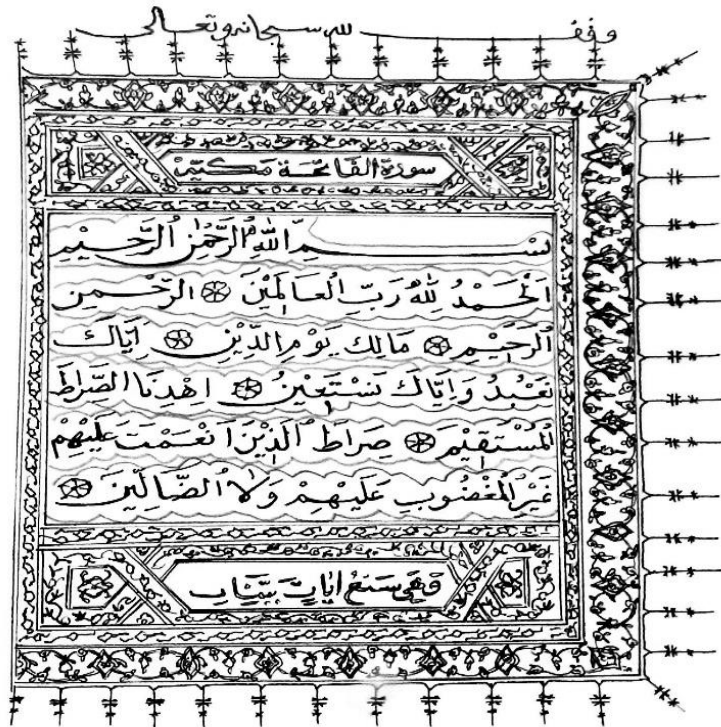 وقف لله سبحانه وتعالى
سورة الفاتحة مكية
بِسْمِ اللهِ الرَّحْمٰنِ الرَّحِيْمِ
اَلْحَمْدُ لِلّٰهِ رَبِّ الْعَالَمِيْنَ ۞ الرَّحْمٰنِ
الرَّحِيْمِ ۞ مَالِكِ يَوْمِ الدِّيْنِ ۞ اِيَّاكَ
نَعْبُدُ وَاِيَّاكَ نَسْتَعِيْنُ ۞ اِهْدِنَا الصِّرَاطَ
الْمُسْتَقِيْمَ ۞ صِرَاطَ الَّذِيْنَ اَنْعَمْتَ عَلَيْهِمْ
غَيْرِ الْمَغْضُوبِ عَلَيْهِمْ وَلَا الضَّالِّيْنَ ۞
وَهِيَ سَبْعُ اٰيَاتٍ بَيِّنَاتٍ